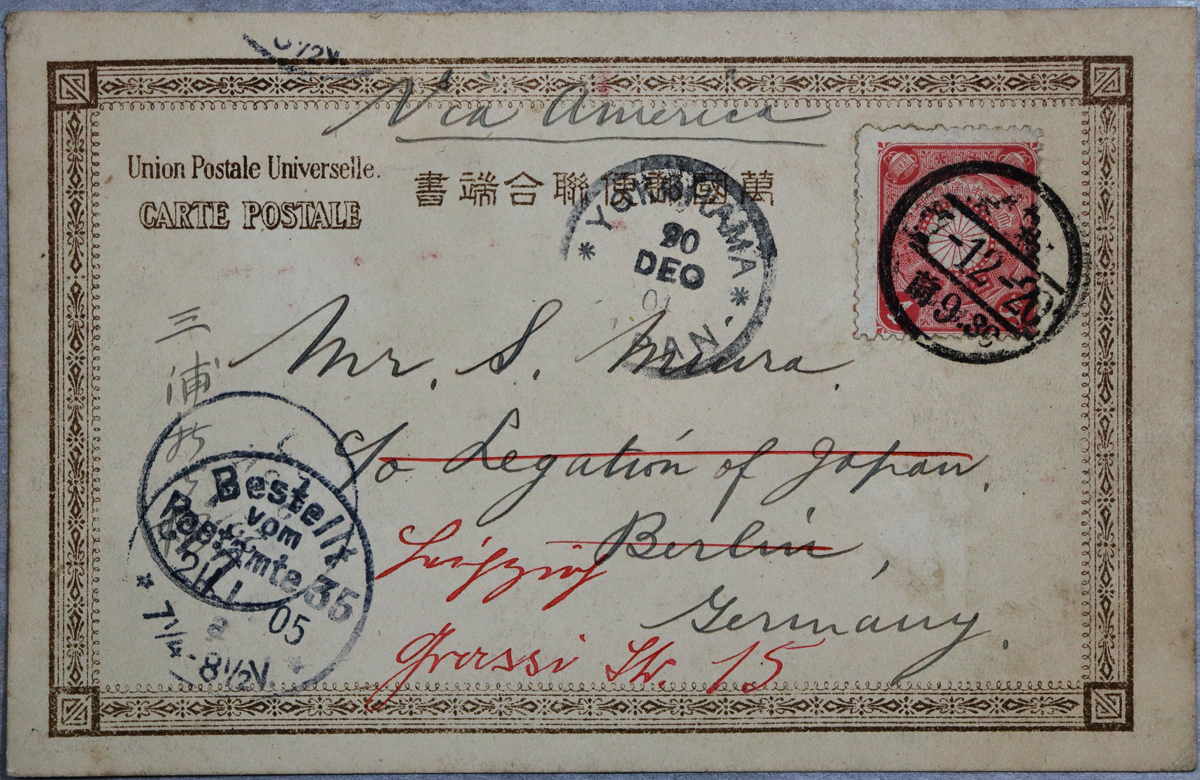 8 1/2V.
Via America
Union Postale Universelle.
CARTE POSTALE
書端合聯便郵國萬
YOKOHAMA
20
DEC
JAPAN.
-12-
前9-
Mr. S. Miura.
三浦
c/o Legation of Japan.
Berlin,
Germany.
Leipzig
Grassi Str. 15
Bestellt
vom
Postamte 35
05
7 1/4-8 1/2V.